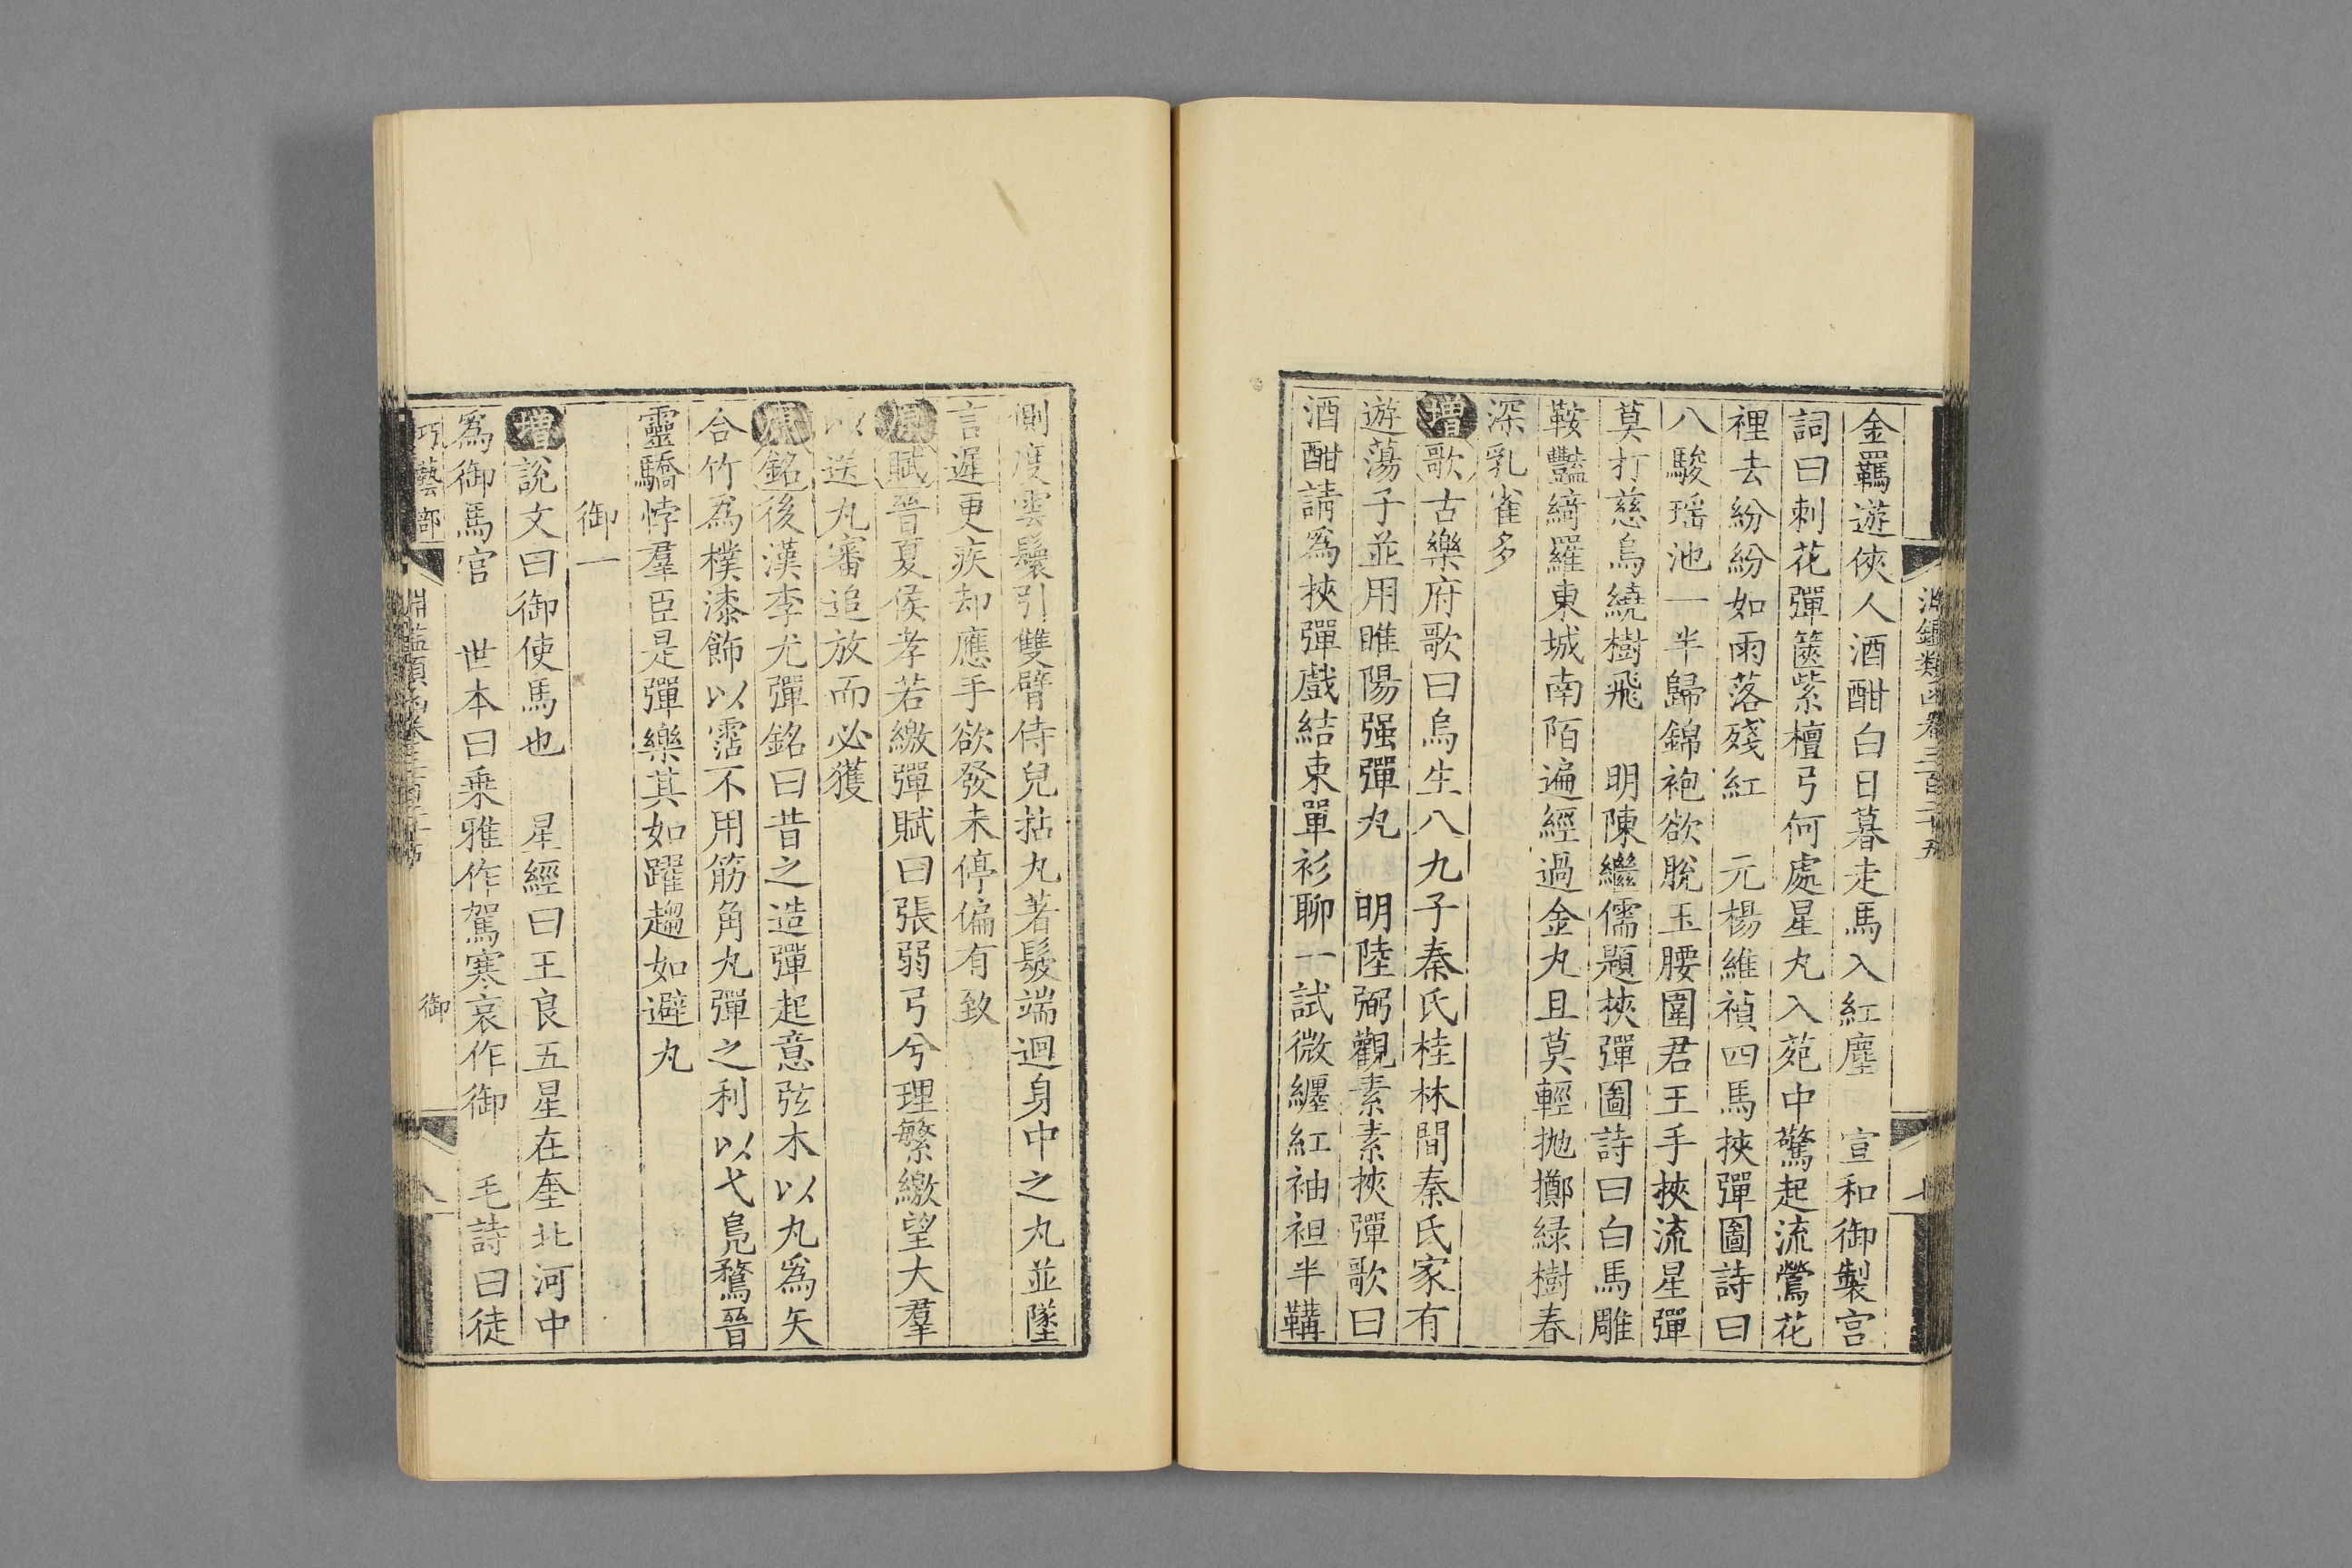 金羈遊俠人酒酣白日暮走馬入紅塵　宣和御製宮
詞曰刺花彈篋紫檀弓何處星丸入苑中驚起流鶯花
裡去紛紛如雨落殘紅　元楊維禎四馬挾彈圖詩曰
八駿瑶池一半歸錦袍欲脫玉腰圍君王手挾流星彈
莫打慈烏繞樹飛　明陳繼儒題挾彈圖詩曰白馬雕
鞍豔綺羅東城南陌遍經過金丸且莫輕拋擲緑樹春
深乳雀多
增歌古樂府歌曰烏生八九子秦氏桂林間秦氏家有
遊蕩子並用睢陽强彈丸　明陸弼觀素素挾彈歌曰
酒酣請爲挾彈戲結束單衫聊一試微纏紅袖袒半韝
側度雲鬟引雙臂侍兒拈丸著髮端迴身中之丸並墜
言遲更疾却應手欲發未停偏有致
原賦晉夏侯孝若繳彈賦曰張弱弓兮理繁繳望大羣
以送丸審追放而必獲
原銘後漢李尤彈銘曰昔之造彈起意弦木以丸爲矢
合竹爲樸漆飾以霑不用筋角丸彈之利以弋鳧鶩晉
靈驕悖羣臣是彈樂其如躍趨如避丸
御一
增說文曰御使馬也　星經曰王良五星在奎北河中
爲御馬官　世本曰乗雅作駕寒哀作御　毛詩曰徒
巧藝部
御